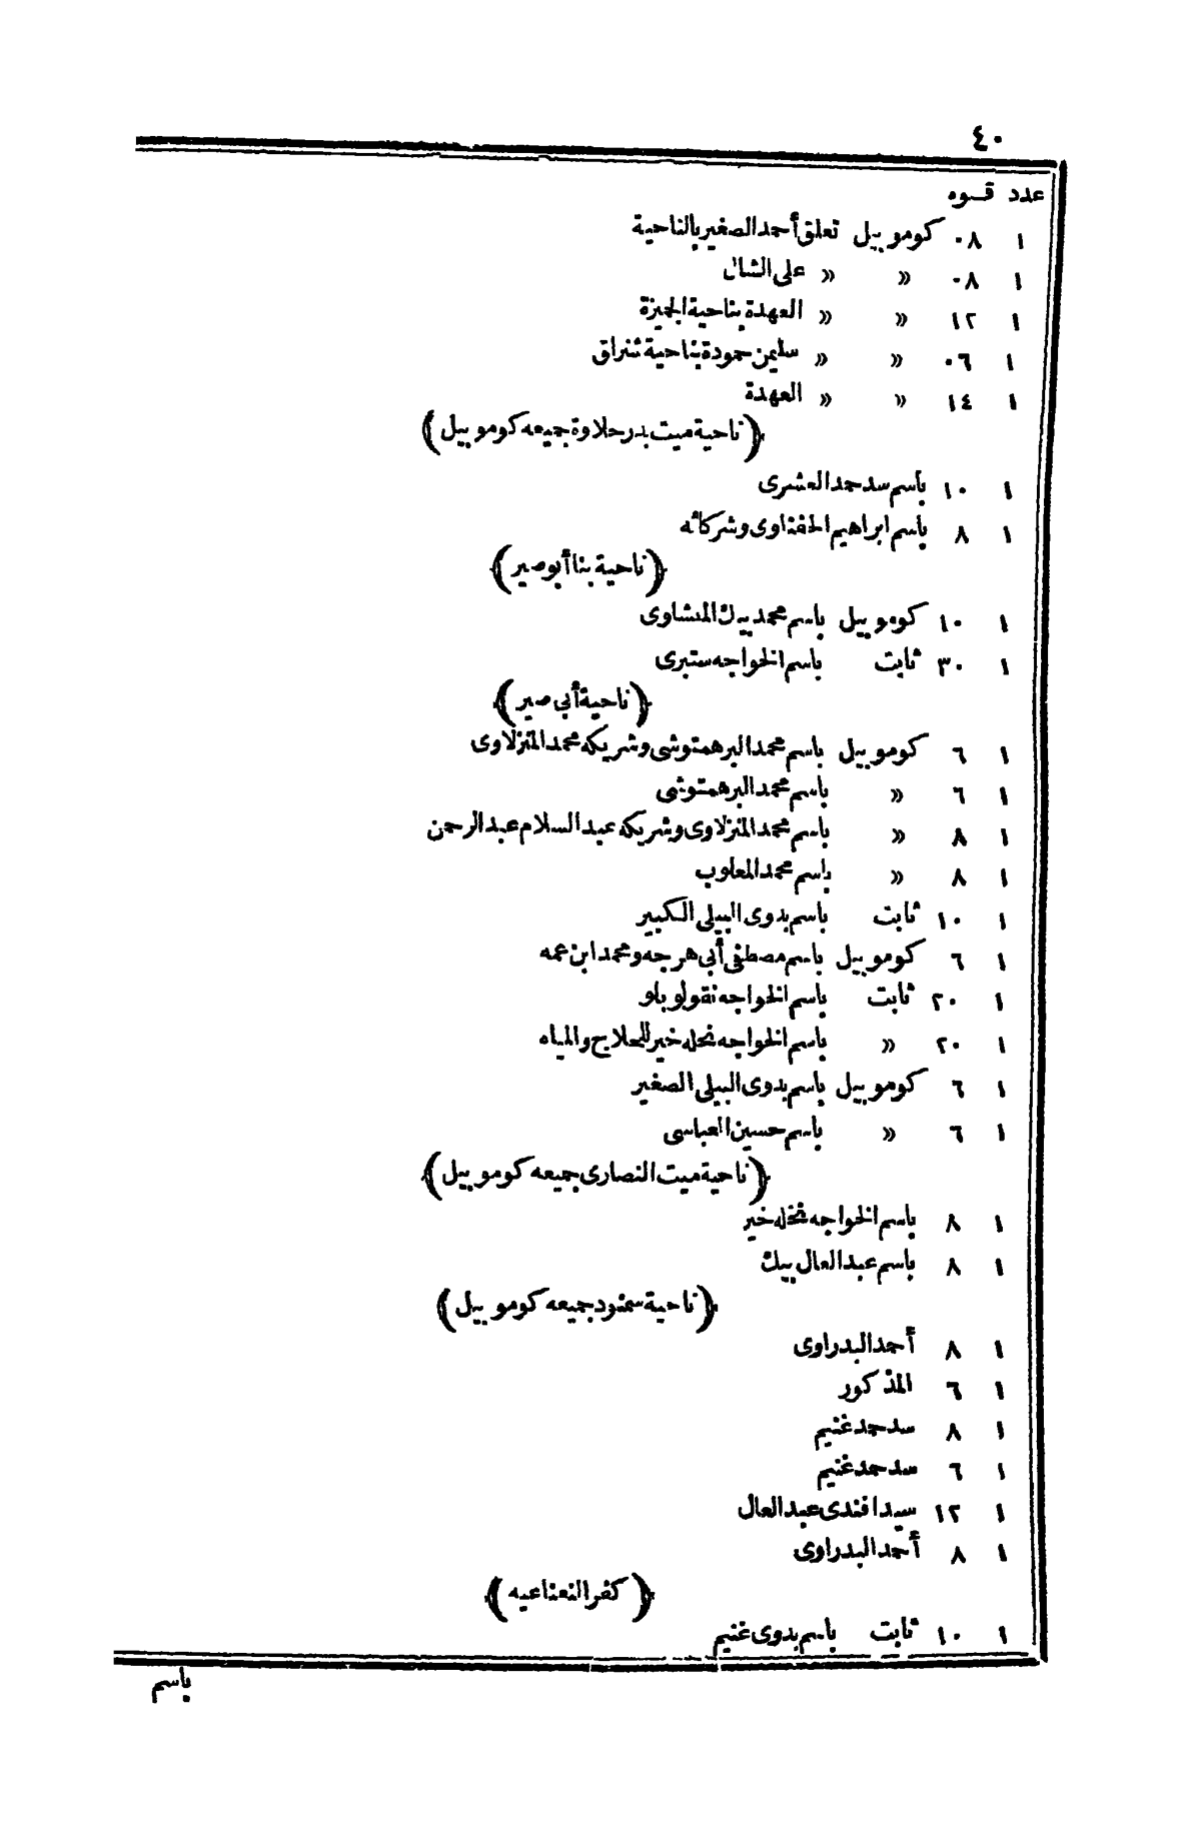 ٤٠
عدد قــوه
١ ٠٨ كوموبيل تعلق أحمد الصغير بالناحية
١ ٠٨ » » على الشال
١ ١٢ » » العهدة بناحية الجيزة
١ ٠٦ » » سليمن حمودة بناحية شنراق
١ ١٤ » » العهدة
(ناحية ميت بدر حلاوة جميعه كوموبيل)
١ ١٠ باسم سد حمد العشرى
١ ٨ باسم ابراهيم الحفناوى وشركائه
(ناحية بنا أبوصير)
١ ١٠ كوموبيل باسم محمد بيك المنشاوى
١ ٣٠ ثابت باسم الخواجه ستبرى
(ناحية أبى صير)
١ ٦ كوموبيل باسم محمد البرهمتوشى وشريكه محمد المنزلاوى
١ ٦ » باسم محمد البرهمتوشى
١ ٨ » باسم محمد المنزلاوى وشريكه عبد السلام عبد الرحمن
١ ٨ » باسم محمد المعلوب
١ ١٠ ثابت باسم بدوى البيلى الكبير
١ ٦ كوموبيل باسم مصطفى أبى هرجه ومحمد ابن عمه
١ ٢٠ ثابت باسم الخواجه نقولو باو
١ ٢٠ » باسم الخواجه نخله خير للحلاج والمياه
١ ٦ كوموبيل باسم بدوى البيلى الصغير
١ ٦ » باسم حسين العباسى
(ناحية ميت النصارى جميعه كوموبيل)
١ ٨ باسم الخواجه نخله خير
١ ٨ باسم عبد العال بيك
(ناحية سمنود جميعه كوموبيل)
١ ٨ أحمد البدراوى
١ ٦ المذكور
١ ٨ سد حمد غنيم
١ ٦ سد حمد غنيم
١ ١٢ سيد افندى عبد العال
١ ٨ أحمد البدراوى
(كفر النعناعيه)
١ ١٠ ثابت باسم بدوى غنيم
باسم